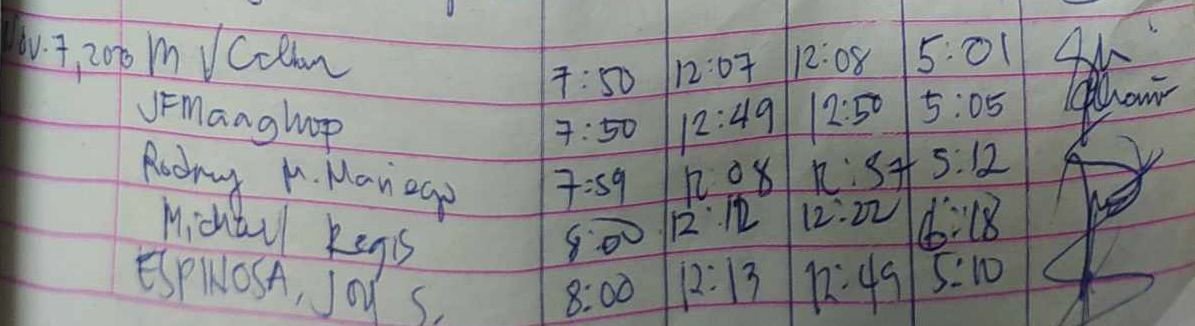 Nov. 7, 2020 M V Callan 7:50 12:07 12:08 5:01
JFMaaghop 7:50 12:49 12:50 5:05
Rodney M. Mañego 7:59 12:08 12:57 5:12
Michael Regis 8:00 12:12 12:22 6:18
ESPINOSA, Joy S. 8:00 12:13 12:49 5:10